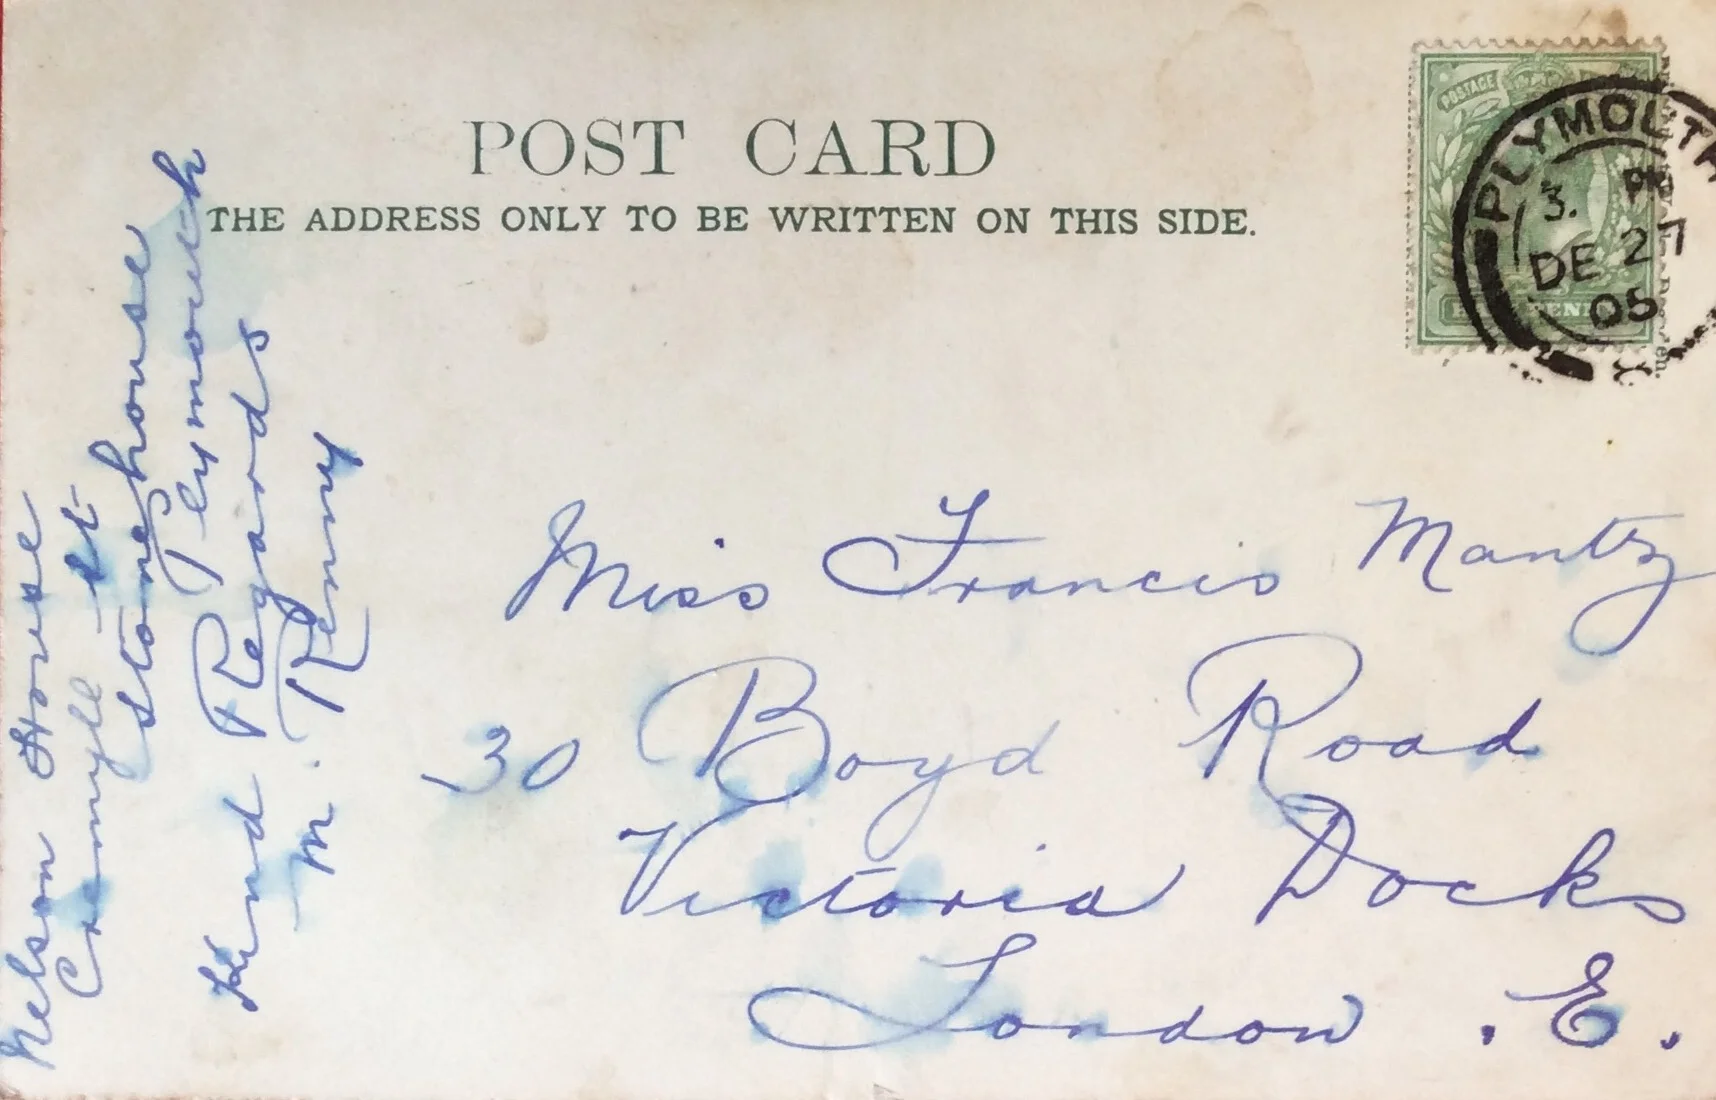 POST CARD
THE ADDRESS ONLY TO BE WRITTEN ON THIS SIDE.
POSTAGE
PLYMOUTH
3. PM
DE 27
05
Miss Francis Mantz
30 Boyd Road
Victoria Docks
London . E.
Nelson House
Cremyll St
Stonehouse
Plymouth
Kind Regards
M. Renny